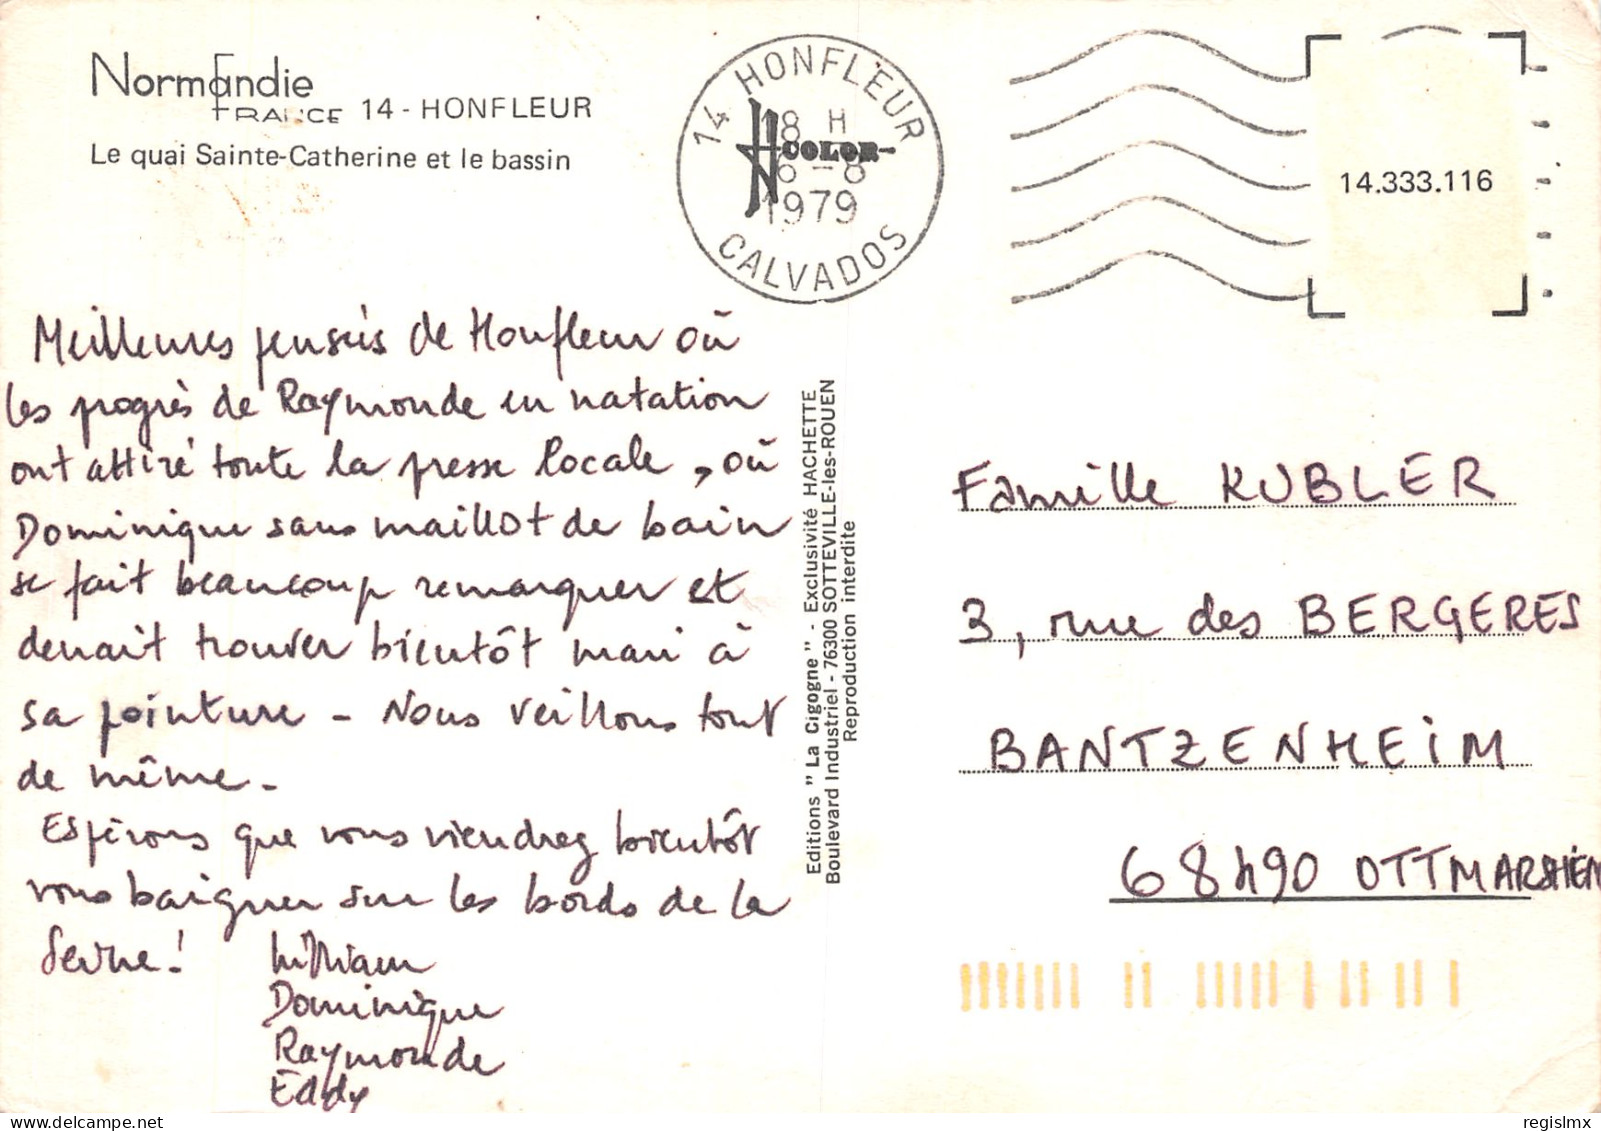 Normandie
FRANCE 14 - HONFLEUR
Le quai Sainte-Catherine et le bassin
14 HONFLEUR
18 H
COLOR
6-8
1979
CALVADOS
14.333.116
Meilleures pensées de Honfleur où
les progrès de Raymonde en natation
ont attiré toute la presse locale, où
Dominique sans maillot de bain
se fait beaucoup remarquer et
devrait trouver bientôt mari à
sa pointure - Nous veillons tout
de même -
Espérons que vous viendrez bientôt
vous baigner sur les bords de la
Seine!
William
Dominique
Raymonde
Eddy
Editions " La Cigogne " - Exclusivité HACHETTE
Boulevard Industriel - 76300 SOTTEVILLE-les-ROUEN
Reproduction interdite
Famille KUBLER
3, rue des BERGERES
BANTZENHEIM
68490 OTTMARSHEIM
regislmx